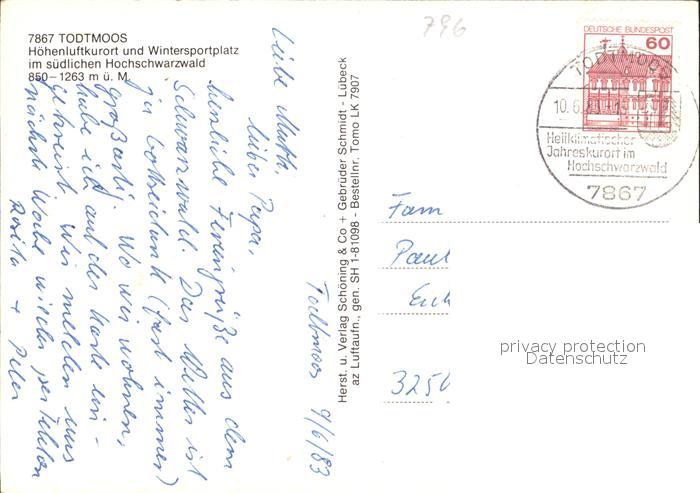 7867 TODTMOOS
Höhenluftkurort und Wintersportplatz
im südlichen Hochschwarzwald
850–1263 m ü. M.
796
DEUTSCHE BUNDESPOST
60
TODTMOOS
10.6.
Heilklimatischer
Jahreskurort im
Hochschwarzwald
7867
Todtmoos 9/6/83
Liebe Mutti,
lieber Papa,
herzliche Feriengrüße aus dem
Schwarzwald. Das Wetter ist
ja (fast immer)
großartig. Wo wir wohnen,
habe ich auf der Karte ein-
gekreist. Wir melden uns
nächste Woche wieder per Telefon
Rosita + Peter
Herst. u. Verlag Schöning & Co + Gebrüder Schmidt - Lübeck
az Luftaufn., gen. SH 1-81098 - Bestellnr. Tomo LK 7907
Fam
Paul
3250
privacy protection
Datenschutz